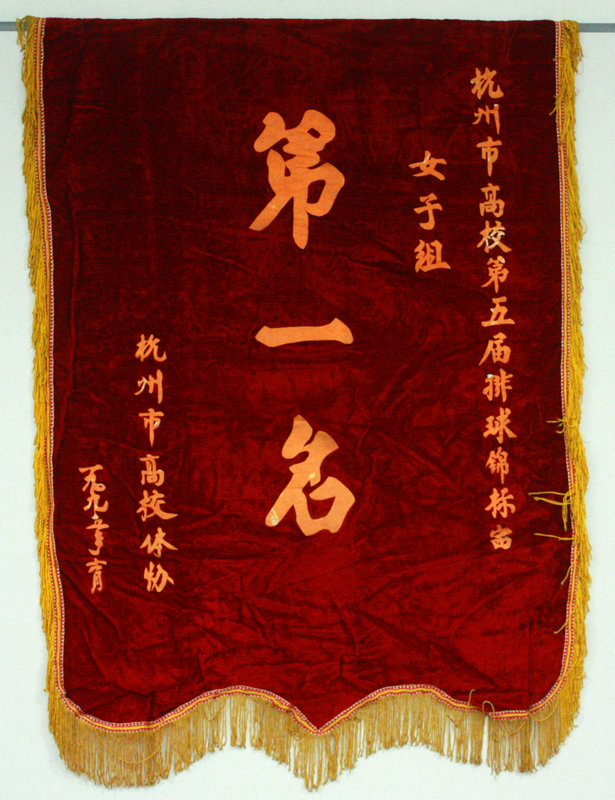 杭州市高校第五届排球锦标赛
女子组
第一名
杭州市高校体协
一九九五年六月